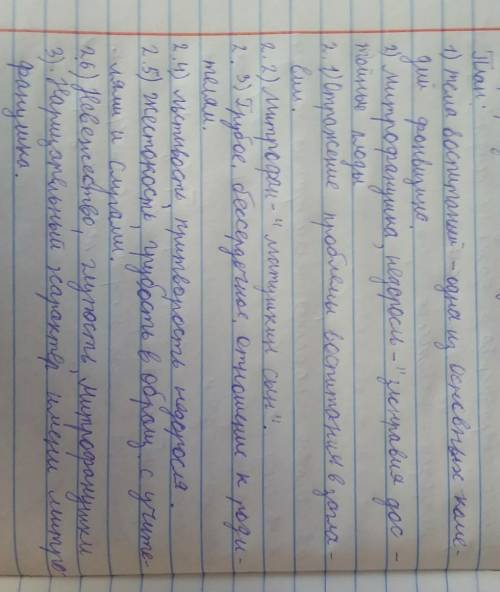 План:
1) тема воспитания - одна из основных коме-
дий фонвизина.
2) Митрофанушка, недоросль - "злонравия дос -
тойные плоды
2.1) Отражение проблемы воспитания в загла -
вии.
2.2) Митрофан - "матушкин сын".
2.3) Грубое, бессердечное отношение к роди-
телям.
2.4) льстивость, притворость недоросля.
2.5) Жестокость, грубость в обращ. с учите-
лями и слугами.
2.6) Невежество, глупость Митрофанушки
3). Нарицательный характер имени Митро
фанушка.